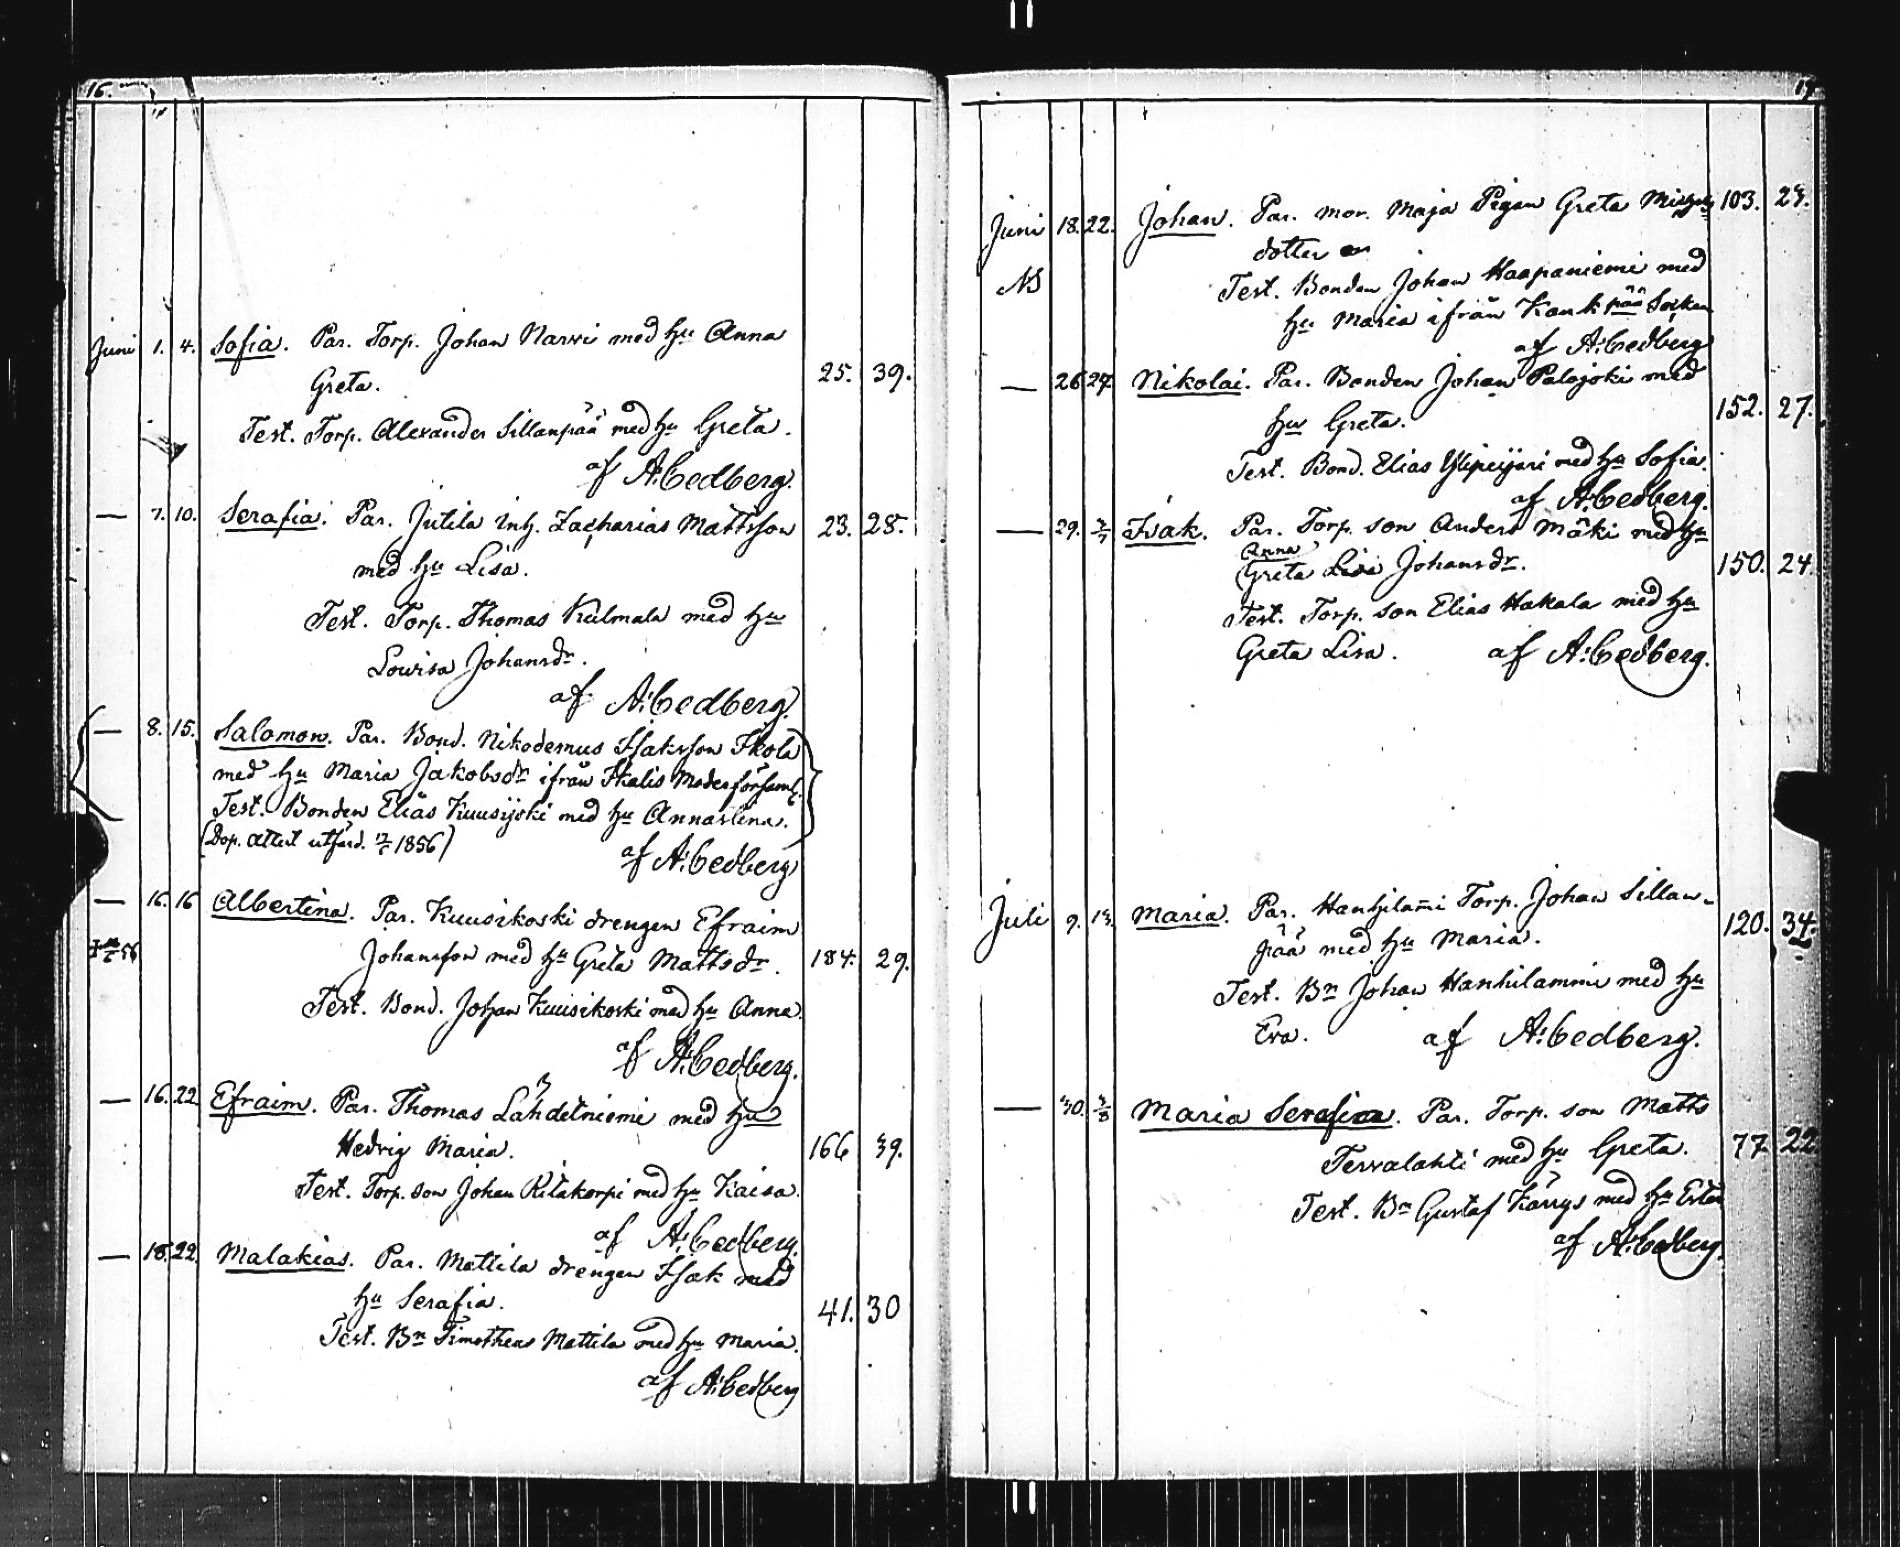 16.
Juni 1. 4. Sofia. Par. Torp. Johan Narvi med hu Anna
Greta. 25. 39.
Test. Torp. Alexander Sillanpää med hu Greta.
af A: Cedberg.
— 7. 10. Serafia. Par. Jutila Inh. Zacharias Mattsson 23. 28.
med hu Lisa.
Test. Torp. Thomas Kulmala med hu
Lovisa Johansdr.
af A: Cedberg.
— 8. 15. Salomon. Par. Bond. Nikodemus Isaksson Skola
med hu Maria Jakobsdr ifrån Ikalis Moderförsaml.
Test. Bonden Elias Kuusijoki med hu Annastina.
(Dop. attest utfärd. 1856)
af A: Cedberg
— 16. 16 Albertina. Par. Kuusikoski drengen Efraim
Johansson med hu Greta Mattsdr. 184. 29.
Test. Bond. Johan Kuusikoski med hu Anna.
af A: Cedberg.
— 16. 22 Efraim. Par. Thomas Lähdetniemi med hu
Hedvig Maria. 166 39.
Test. Torp. son Johan Ritakorpi med hu Kaisa.
af A: Cedberg.
— 18. 22. Malakias. Par. Mattila drengen Isak med
hu Serafia. 41. 30
Test. Bn Timotheus Mattila med hu Maria.
af A: Cedberg
17
Juni 18. 22. Johan. Par. mor. Maja Pigan Greta 103. 23.
dotter
NB Test. Bonden Johan Haapaniemi med
hu Maria ifrån Kankpää Socken
af A: Cedberg
— 26 27. Nikolai. Par. Bonden Johan Palojoki med
hu Greta. 152. 27.
Test. Bond. Elias Ylipeijari med hu Sofia.
af A: Cedberg.
— 29. 3/7 Isak. Par. Torp. son Anders Mäki med hu
Anna
Greta Lisa Johansdr. 150. 24.
Test. Torp. son Elias Hakala med hu
Greta Lisa. af A: Cedberg.
Juli 9. 13. Maria. Par. Hanhilami Torp. Johan Sillan-
pää med hu Maria. 120. 34.
Test. Bn Johan Hanhilammi med hu
Eva. af A: Cedberg.
— 30. 3/8 Maria Serafia. Par. Torp. son Matts
Tervalahti med hu Greta. 77. 22
Test. Bn Gustaf Kärrys med hu Ester
af A: Cedberg.